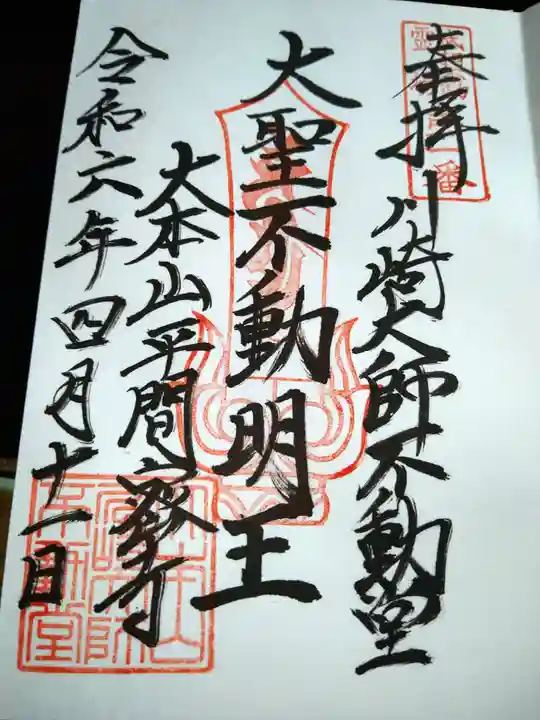 奉拝
川崎大師不動堂
大聖不動明王
大本山平間寺
令和六年四月十一日